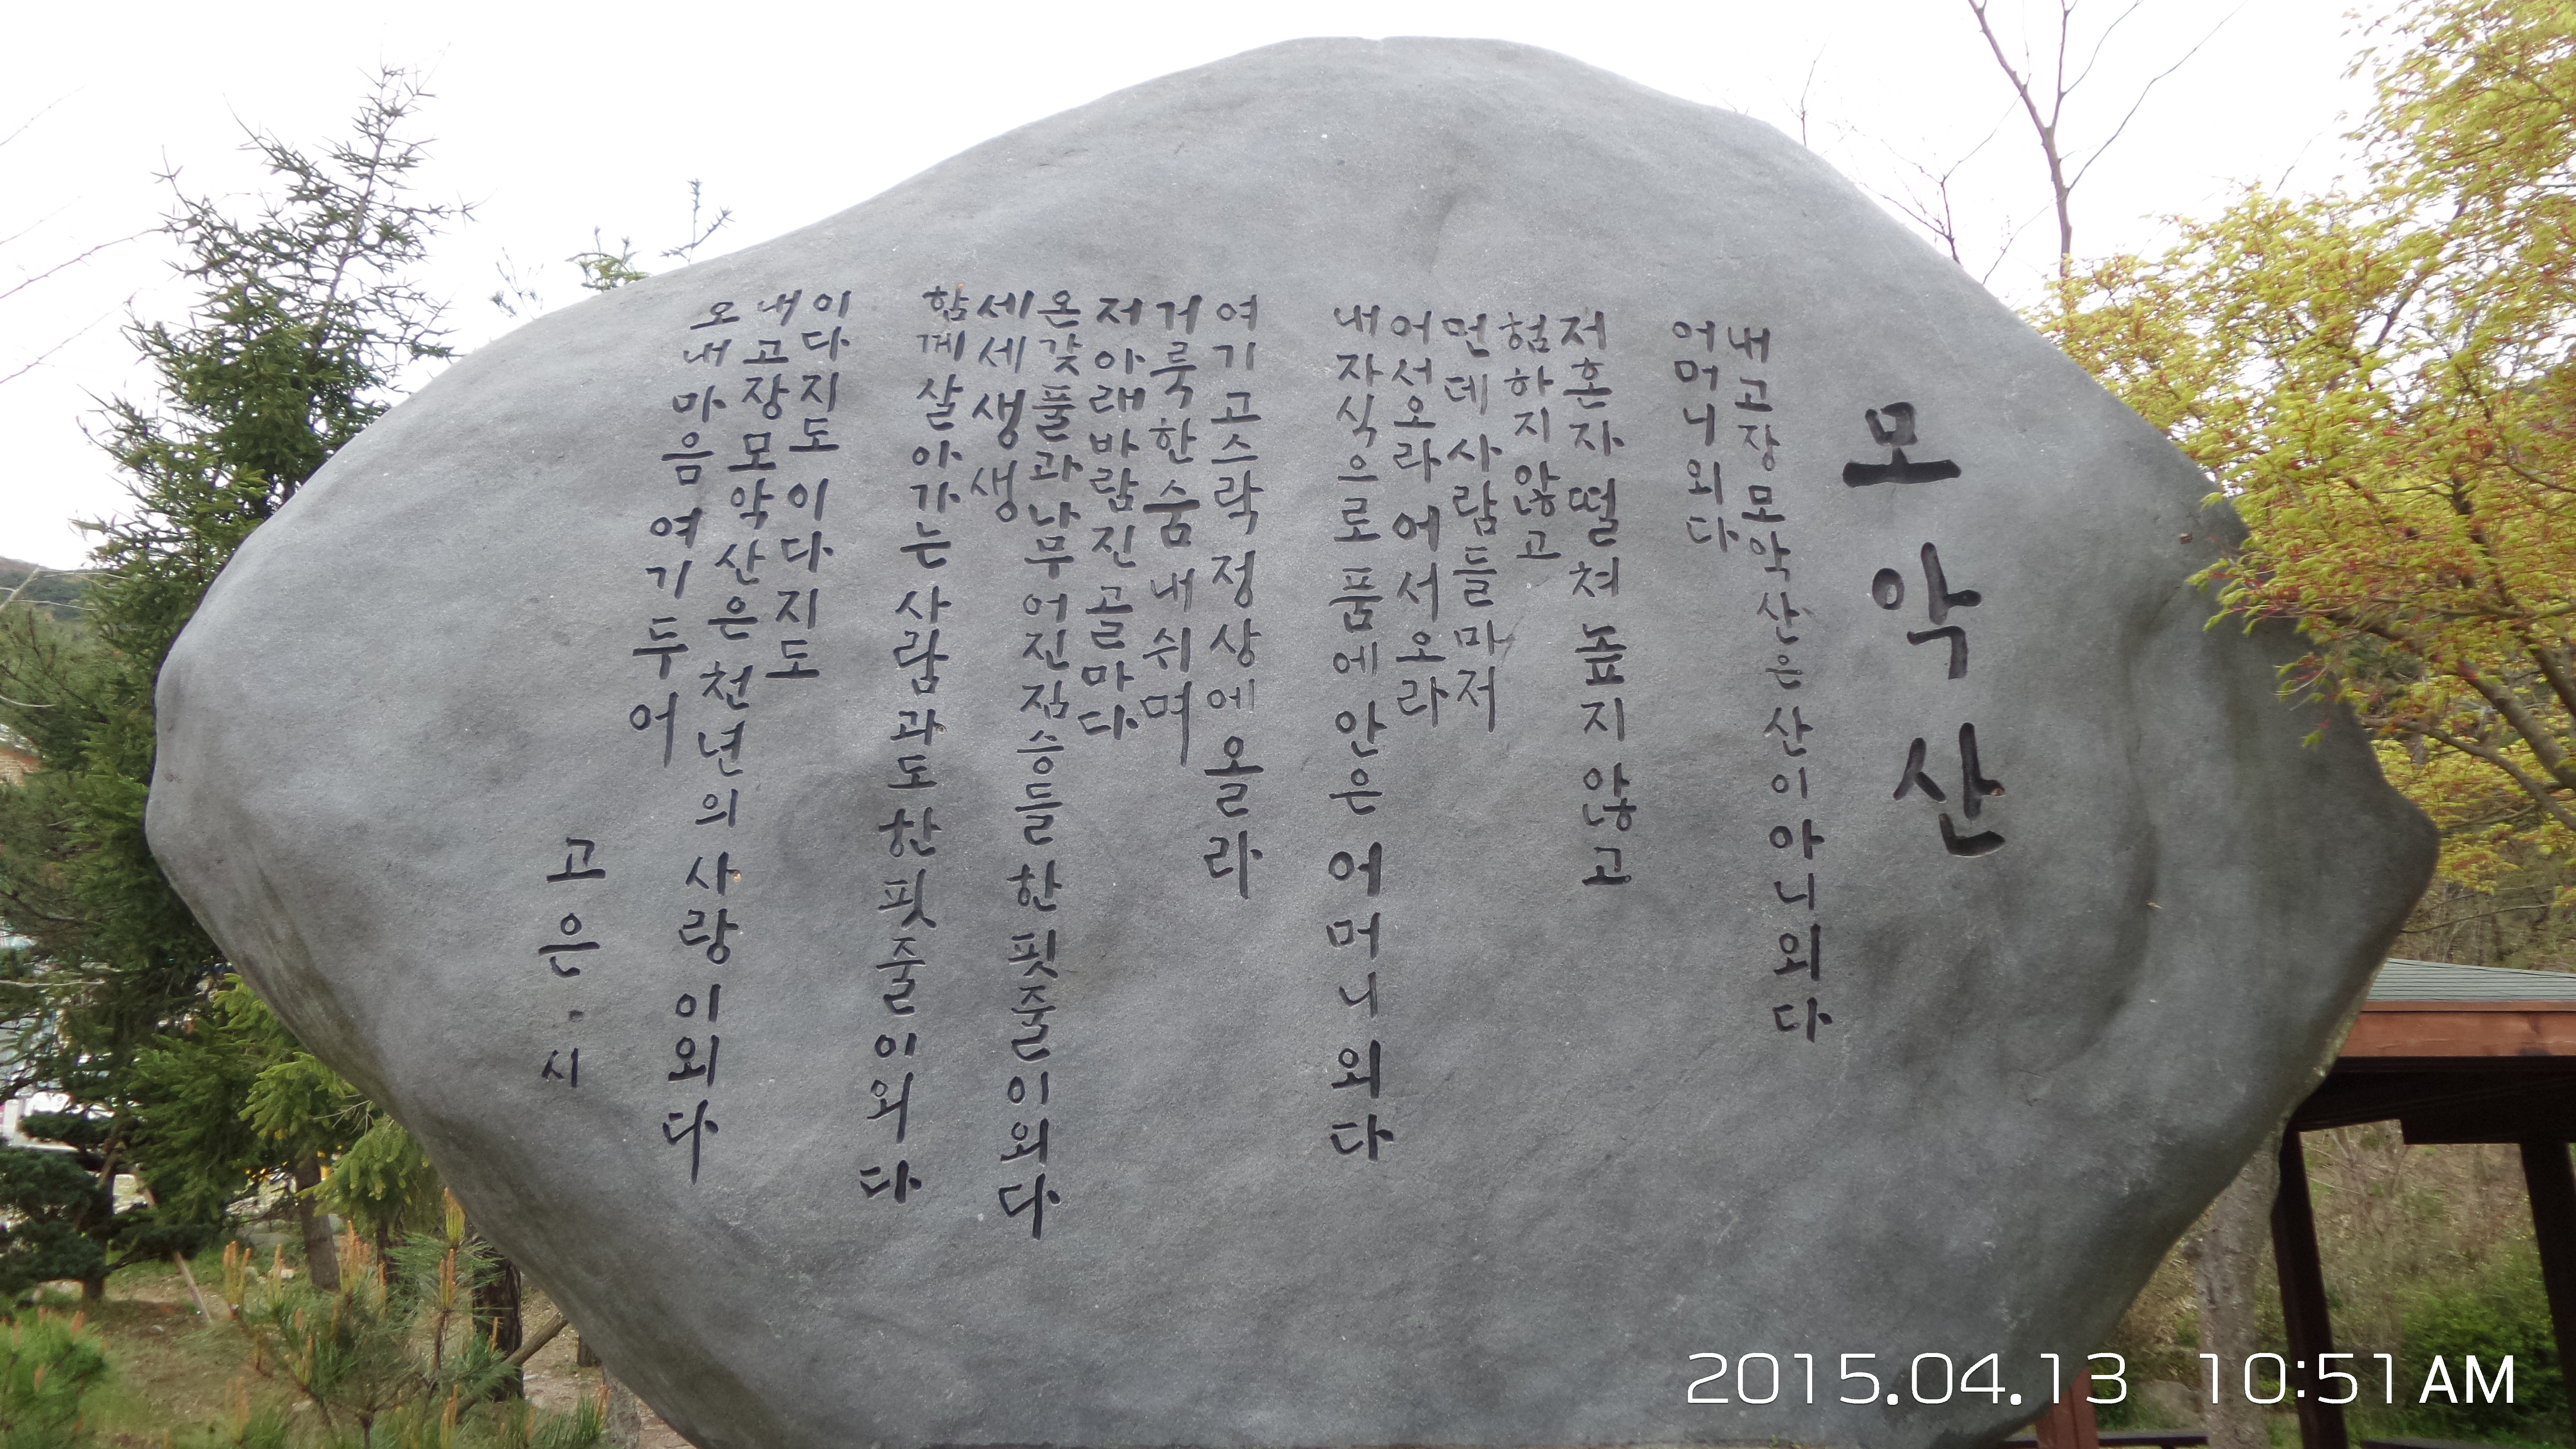 모악산
내고장 모악산은 산이 아니외다
어머니외다
저혼자 떨쳐 높지 않고
험하지 않고
먼데 사람들마저
어서오라 어서오라
내자식으로 품에 안은 어머니외다
여기 고스락 정상에 올라
거룩한 숨 내쉬며
저아래 바람진 골마다
온갖 풀과 나무 어진 짐승들 한 핏줄이외다
세세생생
함께 살아가는 사람과도 한 핏줄이외다
이다지도 이다지도
내고장 모악산은 천년의 사랑이외다
오 내마음 여기 두어
고은 · 시
2015.04.13 10:51 AM